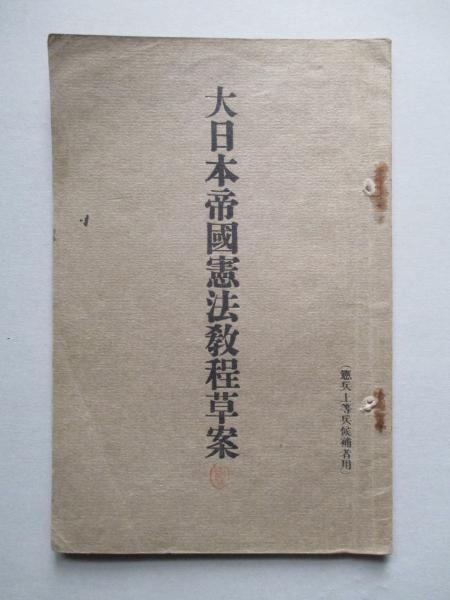 （憲兵上等兵候補者用）
大日本帝國憲法教程草案